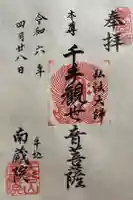 奉拝
弘法大師
本尊
千手観世音菩薩
令和六年
四月廿八日
南蔵院